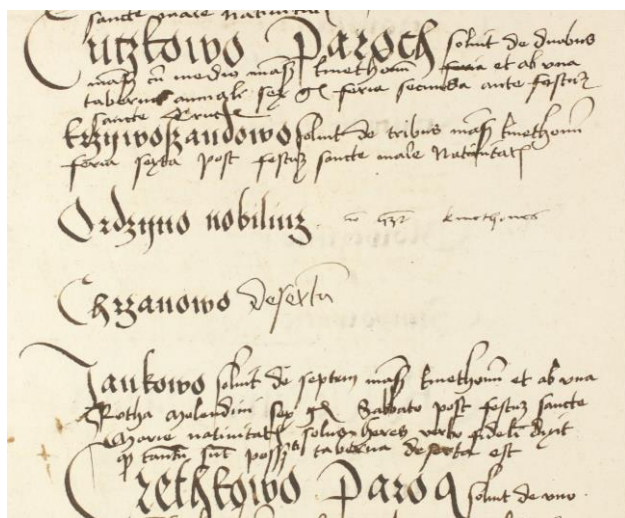 sancte marie Natiuitat
Cutzkowo Paroch soluit de duobus
mass cu medio mass kmethonu feria et ab vna
taberna annuali sex gl feria secunda ante festuz
sancte Crucis
krzywoszandowo soluit de tribus mass kmethonu
feria sexta post festuz sancte marie Natiuitat
Ordzyno nobiliuz kmethones
Chrzanowo deserta
Jankowo soluit de septem mass kmethonu et ab vna
Rotha molendini sex gl Sabbato post festuz sancte
Marie natiuitat verbo fideli dixit
tantu sut taberna deserta est
Crethkowo Paroch soluit de vno